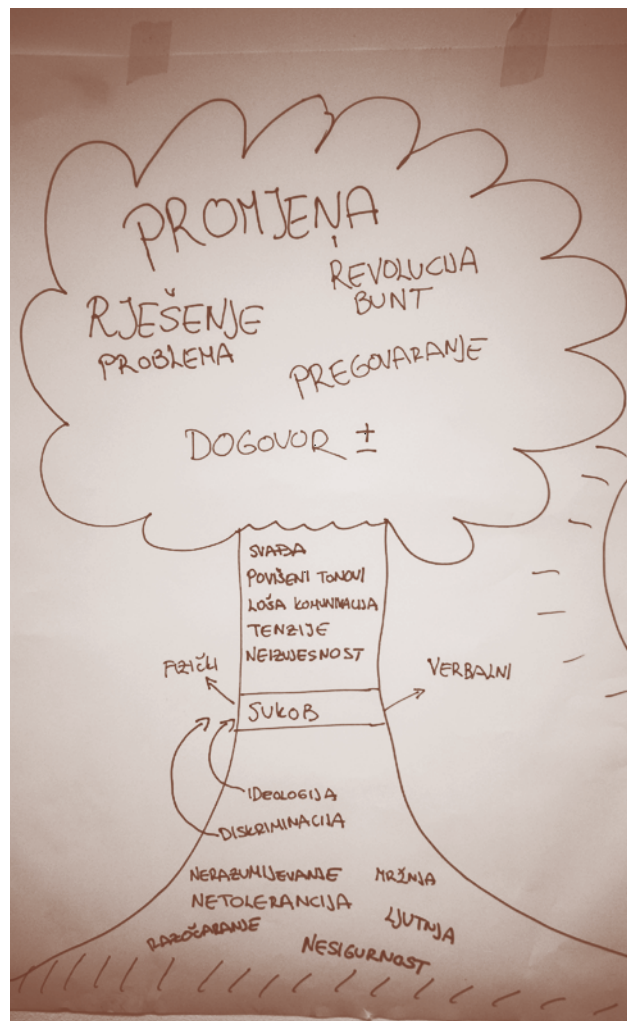 PROMJENA
REVOLUCIJA
BUNT
RJEŠENJE
PROBLEMA
PREGOVARANJE
DOGOVOR ±
SVAĐA
POVIŠENI TONOVI
LOŠA KOMUNIKACIJA
TENZIJE
NEIZVJESNOST
FIZIČKI
VERBALNI
SUKOB
IDEOLOGIJA
DISKRIMINACIJA
NERAZUMIJEVANJE MRŽNJA
NETOLERANCIJA
LJUTNJA
RAZOČARANJE
NESIGURNOST